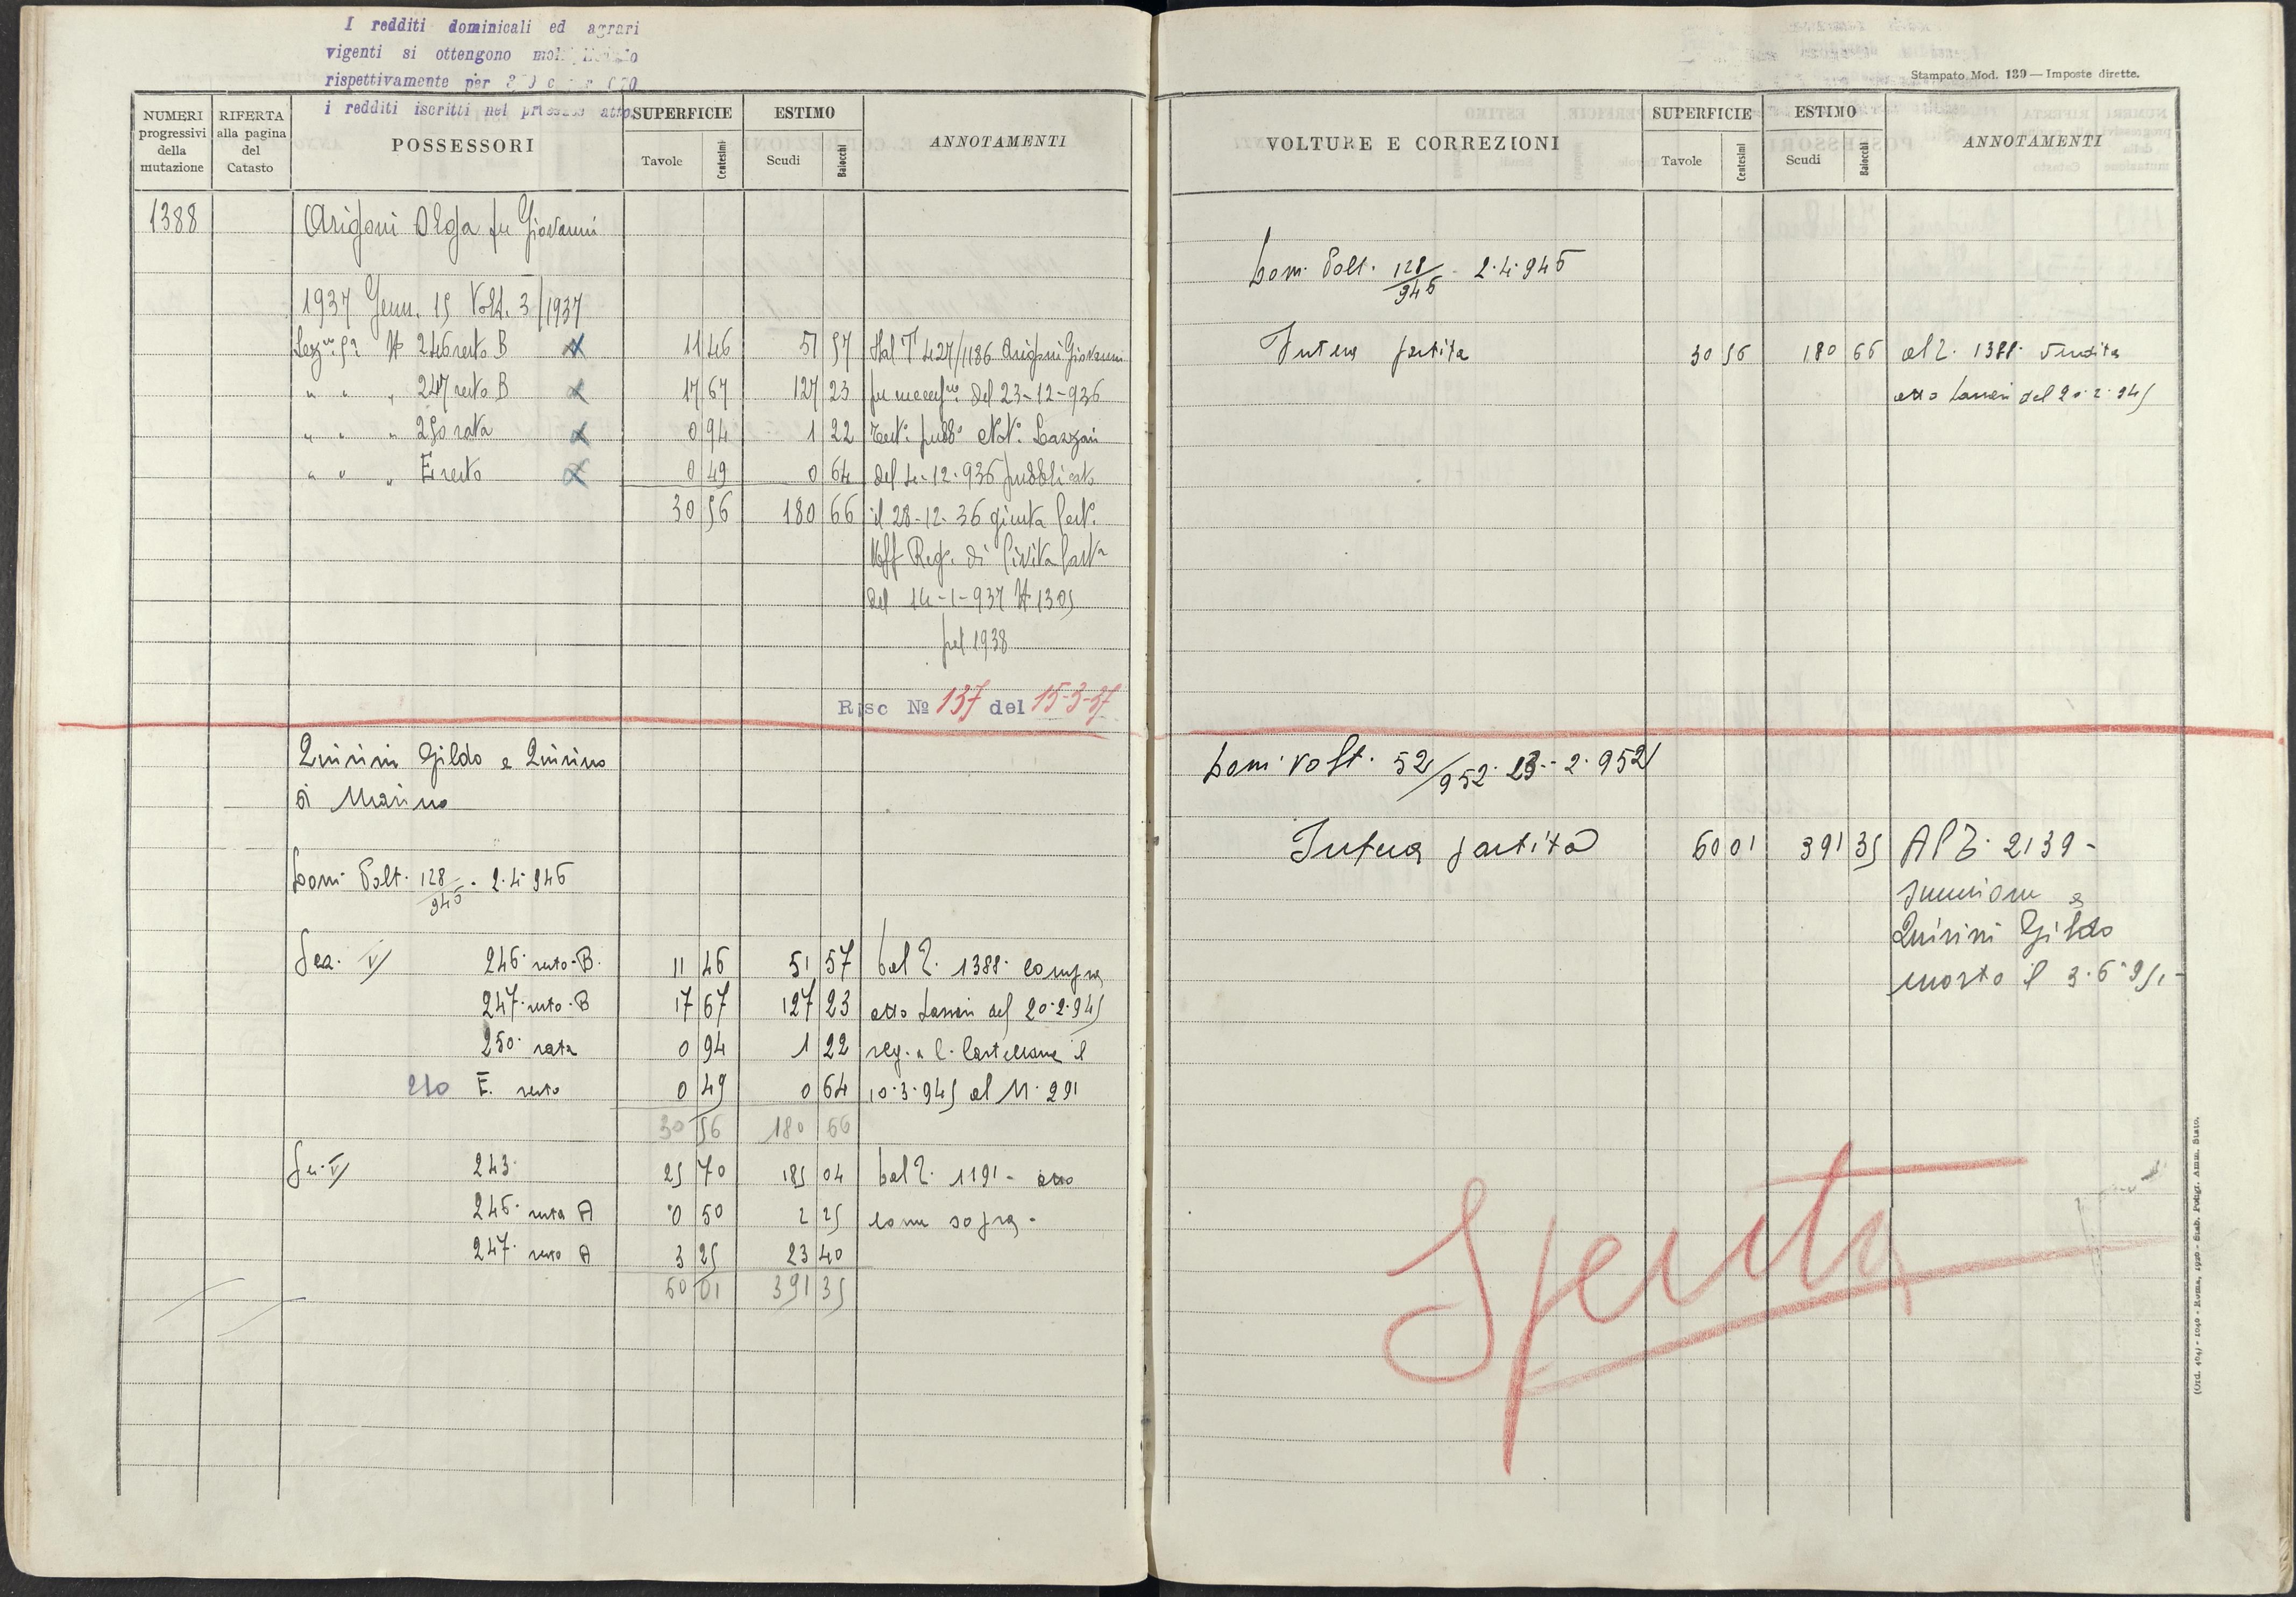 I redditi dominicali ed agrari
vigenti si ottengono
rispettivamente per
i redditi iscritti nel presente atto.
NUMERI progressivi della mutazione
RIFERTA alla pagina del Catasto
POSSESSORI
SUPERFICIE
Tavole Centesimi
ESTIMO
Scudi Baiocchi
ANNOTAMENTI
1388 Arigoni Olga fu Giovanni
1937 Genn. 15 Volt. 3/1937
Sez.ne 5a N 246 resto B 11 46 51 57 Dal T 427/1186 Arigoni Giovanni
" " " 247 resto B 17 67 127 23 per success.ne del 23-12-936
" " " 250 rata 0 94 1 22 Test. pubb. Not.
" " " E resto 0 49 0 64 del 4-12-936 pubblicato
30 56 180 66 il 28-12-36 giusta Cert.
Uff Reg. di Civita Cast.a
del 14-1-937 N 1305
pel 1938
Risc No 137 del 15-3-37
Quirini Gildo e Quirino
di Marino
Dom. Volt. 128/945 - 2.4.945
Sez. V 246 resto B 11 46 51 57 Dal T. 1388 compra
247 resto B 17 67 127 23 atto del 20.2.945
250 rata 0 94 1 22 reg. a C. Castellana il
250 E. resto 0 49 0 64 10.3.945 al N. 291
30 56 180 66
Sez. V 243 25 70 185 04 Dal T. 1191 - atto
246 resto A 0 50 2 25 come sopra -
247 resto A 3 25 23 40
60 01 391 35
Stampato Mod. 139 — Imposte dirette.
VOLTURE E CORREZIONI
SUPERFICIE
Tavole Centesimi
ESTIMO
Scudi Baiocchi
ANNOTAMENTI
Dom. Volt. 128/945 - 2.4.945
Intera partita 30 56 180 66 al T. 1388 Vendita
atto del 20.2.945
Dom. Volt. 52/952 23-2-952
Intera partita 60 01 391 35 Al T. 2139 -
Quirini Gildo
morto il 3.6.951 -
Spenta